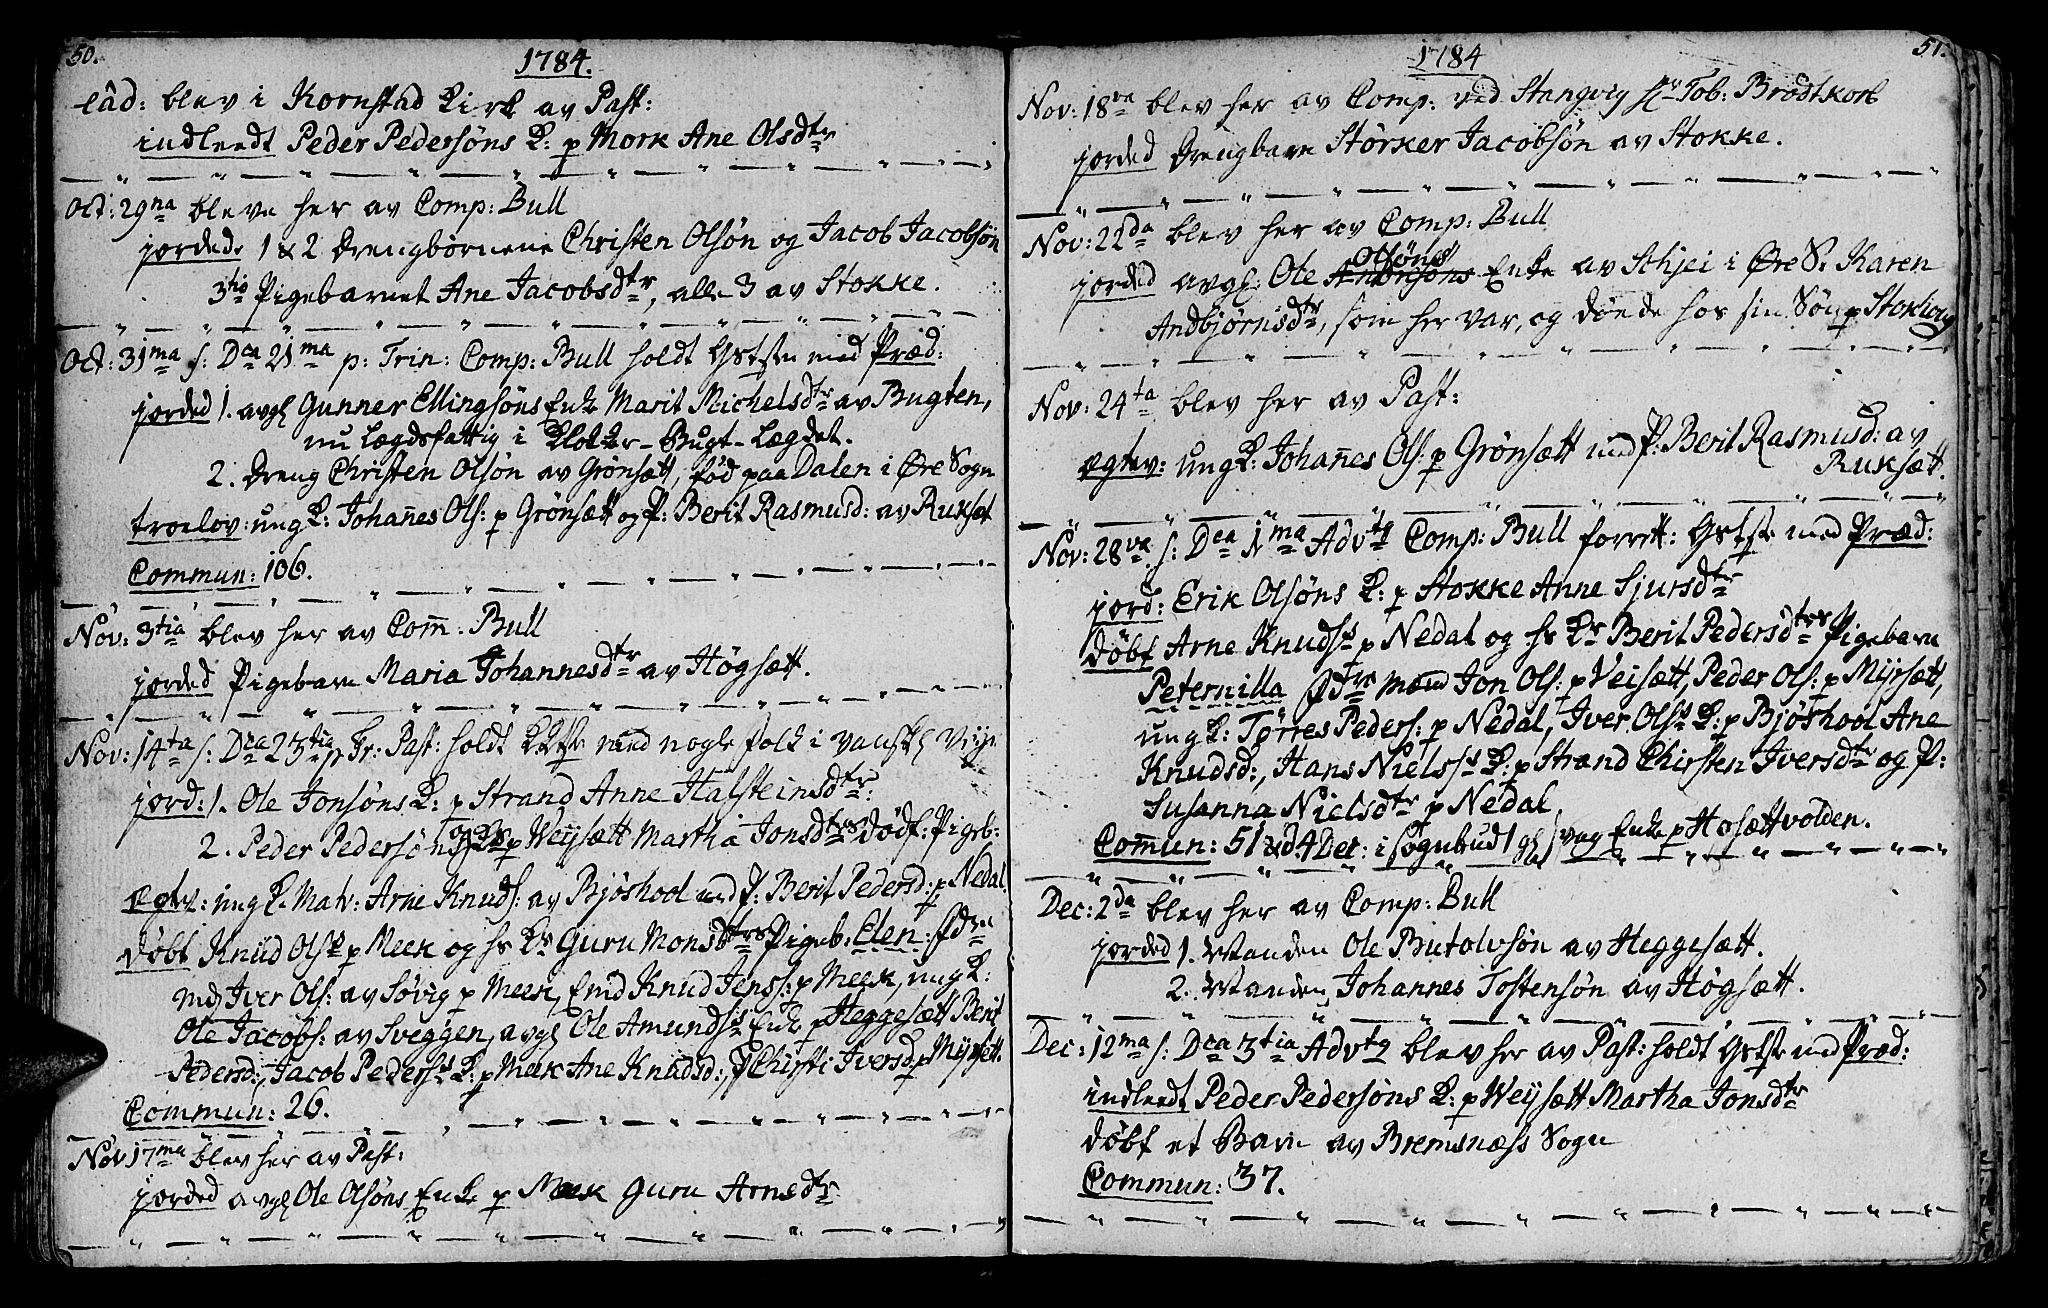 50.
1784.
eâd: blev i Kornstad Kirk av Past:
indleedt Peder Pedersöns K: p Mork Ane Olsdtr
Oct: 29na bleve her av Comp: Bull
jorded. 1 & 2 Drengbörnene Christen Olsön og Jacob Jacobsön
3tio Pigebarnet Ane Jacobsdtr, alle 3 av Stokke.
Oct: 31ma s: Dca 21ma p: Trin: Comp: Bull holdt Gstste med Præd:
jorded 1. avgl Gunner Ellingsöns Enke Marit Michelsdtr av Bugten,
nu Lægdsfattig i Klokker-Bugt-Lægdet.
2. Dreng Christen Olsön av Grönsætt, föd paa Dalen i Öre Sogn
troelov: ung K: Johañes Ols: p Grönsætt og P: Berit Rasmusd: av Ruksæt
Commun: 106.
Nov: 3tia blev her av Com̃: Bull
jorded Pigebarn Maria Johannesdtr av Högsætt.
Nov: 14ta s: Dca 23tia p Tr: Past: holdt med nogle folk i vanskl
jord: 1. Ole Jonsöns K: p Strand Anne Halsteinsdtr:
2. Peder Pedersön og Ks p Weysætt Martha Jonsdtrs dödf: Pigeb:
egtv: ung K. Matr: Arne Knuds: av Bjöshool med P. Berit Pedersd: p Nedal.
döbt Knud Olss p Meek og hs Ks Guru Monsdtrs Pigeb: Elen: fdre
md Iver Ols: av Sövig p Meek, Emd Knud Jenss: p Meek, ung K:
Ole Jacobs: av Sveggen, avgl Ole Amundss Enke p Heggesætt Berit
Pedersd:, Jacob Pederss K: p Meek Ane Knudsd:, P Chirsti Iversd p Myrsætt.
Commun: 26.
Nov 17ma blev her av Past:
jorded avgl Ole Olsöns Enke p Meek Guru Arnesdtr
51.
1784
Nov: 18va blev her av Comp: ved Stangvig Hr Tob: Brodtkorb
jorded Drengbarn Störker Jacobsön av Stokke.
Nov: 22da blev her av Comp: Bull
jorded avgl: Ole Olsöns Enke av Schjei i Öre S: Karen
Andbjörnsdtr, som her var, og döede hos sin Sön p Stokhoug
Nov: 24ta blev her av Past:
egtev: ung K: Johañes Ols: p Grönsætt med P: Berit Rasmusd: av
Ruksætt.
Nov: 28va s: Dca 1ma Advtq Comp: Bull forrett: Gstste med Præd:
jord: Erik Olsöns K: p Stokke Anne Sjursdtr
döbt Arne Knudss p Nedal og hs Ks Berit Pedersdtrs Pigebarn
Peternilla fdre mænd Jon Ols: p Veisætt, Peder Ols: p Myrsætt,
ung K: Törres Peders: p Nedal, Iver Olss K: p Bjöshool Ane
Knudsd:, Hans Nielss K: p Strand Chirsten Iversdtr og P:
Susanna Nielsdtr p Nedal
Com̃un: 51 & d. 4 Dec: i Sognebud 1 gl svag Enke p Hosættvolden.
Dec: 2da blev her av Comp: Bull
jorded 1. Manden Ole Butolvsön av Heggesætt.
2. Manden Johannes Tostensön av Högsætt.
Dec: 12ma s: Dca 3tia Advtq blev her av Past: holdt Gstste med Præd:
indleedt Peder Pedersöns K: p Weysætt Martha Jonsdtr
döbt et Barn av Bremsnæss Sogn
Commun: 37.